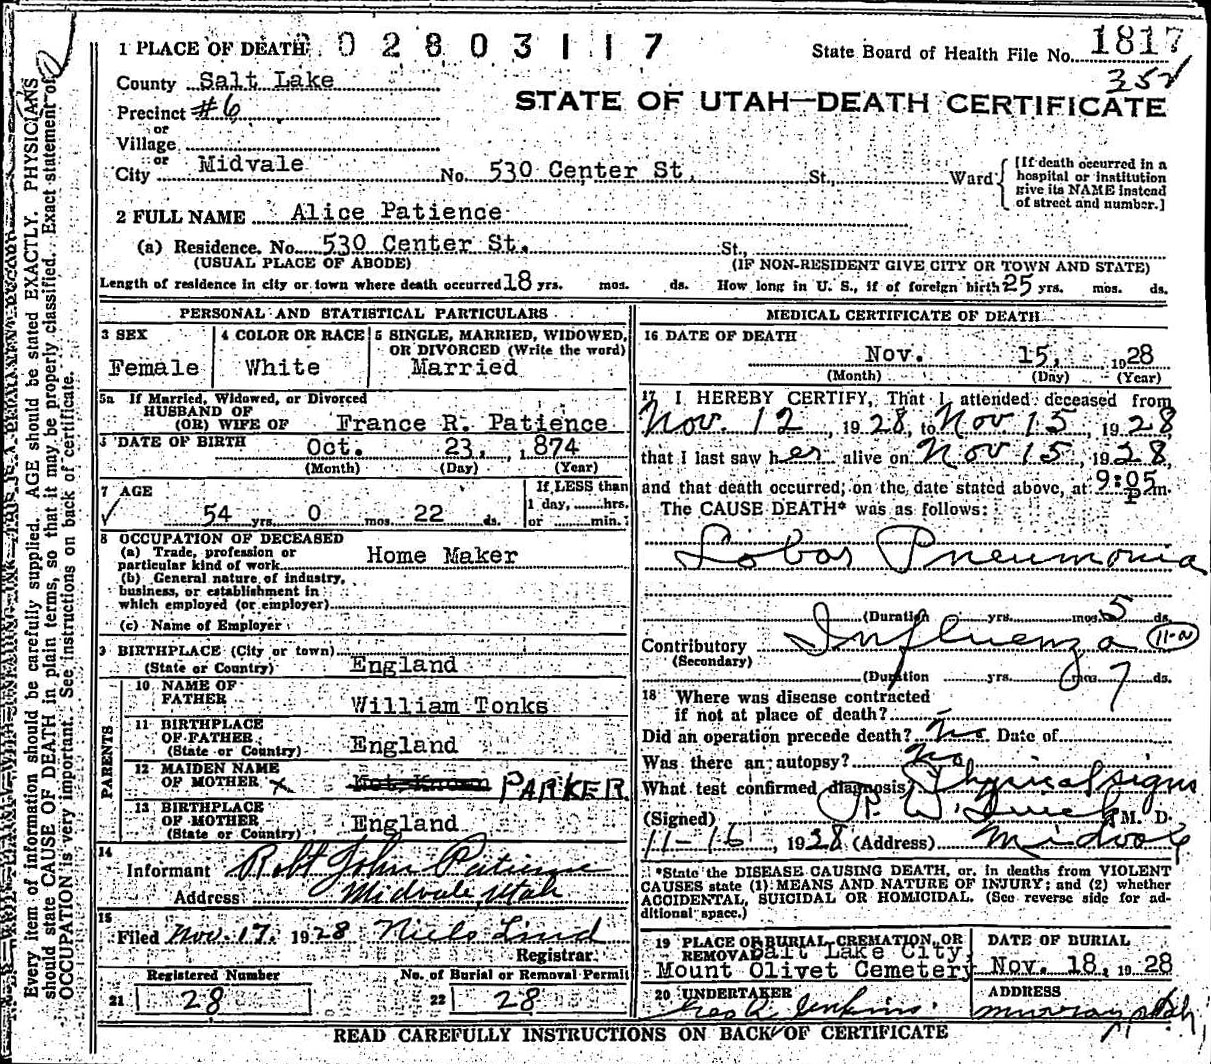 Every item of information should be carefully supplied. AGE should be stated EXACTLY. PHYSICIANS
should state CAUSE OF DEATH in plain terms, so that it may be properly classified. Exact statement of
OCCUPATION is very important. See instructions on back of certificate.
1 PLACE OF DEATH 0 2 8 0 3 1 1 7
State Board of Health File No. 1817
352
County Salt Lake
STATE OF UTAH—DEATH CERTIFICATE
Precinct #6
or
Village
or
City Midvale No. 530 Center St. St., Ward
[If death occurred in a
hospital or institution
give its NAME instead
of street and number.]
2 FULL NAME Alice Patience
(a) Residence. No. 530 Center St. St.,
(USUAL PLACE OF ABODE) (IF NON-RESIDENT GIVE CITY OR TOWN AND STATE)
Length of residence in city or town where death occurred 18 yrs. mos. ds. How long in U. S., if of foreign birth 25 yrs. mos. ds.
PERSONAL AND STATISTICAL PARTICULARS
3 SEX
Female
4 COLOR OR RACE
White
5 SINGLE, MARRIED, WIDOWED,
OR DIVORCED (Write the word)
Married
5a If Married, Widowed, or Divorced
HUSBAND OF
(OR) WIFE OF France R. Patience
DATE OF BIRTH Oct. 23, 1874
(Month) (Day) (Year)
7 AGE
54 yrs. 0 mos. 22 ds.
If LESS than
1 day, hrs.
or min.
8 OCCUPATION OF DECEASED
(a) Trade, profession or
particular kind of work Home Maker
(b) General nature of industry,
business, or establishment in
which employed (or employer)
(c) Name of Employer
9 BIRTHPLACE (City or town)
(State or Country) England
PARENTS
10 NAME OF
FATHER William Tonks
11 BIRTHPLACE
OF FATHER
(State or Country) England
12 MAIDEN NAME
OF MOTHER x Not Known PARKER
13 BIRTHPLACE
OF MOTHER
(State or Country) England
14
Informant Robt John Patience
Address Midvale, Utah
15
Filed Nov. 17, 1928 Niels Lind
Registrar.
Registered Number
21 28
No. of Burial or Removal Permit
22 28
MEDICAL CERTIFICATE OF DEATH
16 DATE OF DEATH
Nov. 15, 1928
(Month) (Day) (Year)
17 I HEREBY CERTIFY, That I attended deceased from
Nov. 12, 1928, to Nov 15, 1928,
that I last saw her alive on Nov 15, 1928,
and that death occurred, on the date stated above, at 9:05 P m.
The CAUSE DEATH* was as follows:
Lobar Pneumonia
(Duration yrs. mos. 5 ds.
Contributory Influenza 11-a
(Secondary)
(Duration yrs. mos 7 ds.
18 Where was disease contracted
if not at place of death? —
Did an operation precede death? no Date of
Was there an autopsy? no
What test confirmed diagnosis? Physical signs
(Signed) M. D.
11-16, 1928 (Address) Midvale
*State the DISEASE CAUSING DEATH, or, in deaths from VIOLENT
CAUSES state (1) MEANS AND NATURE OF INJURY; and (2) whether
ACCIDENTAL, SUICIDAL OR HOMICIDAL. (See reverse side for ad-
ditional space.)
19 PLACE OF BURIAL, CREMATION, OR
REMOVAL Salt Lake City,
Mount Olivet Cemetery
DATE OF BURIAL
Nov. 18, 1928
20 UNDERTAKER
Jenkins
ADDRESS
Murray, Utah
READ CAREFULLY INSTRUCTIONS ON BACK OF CERTIFICATE